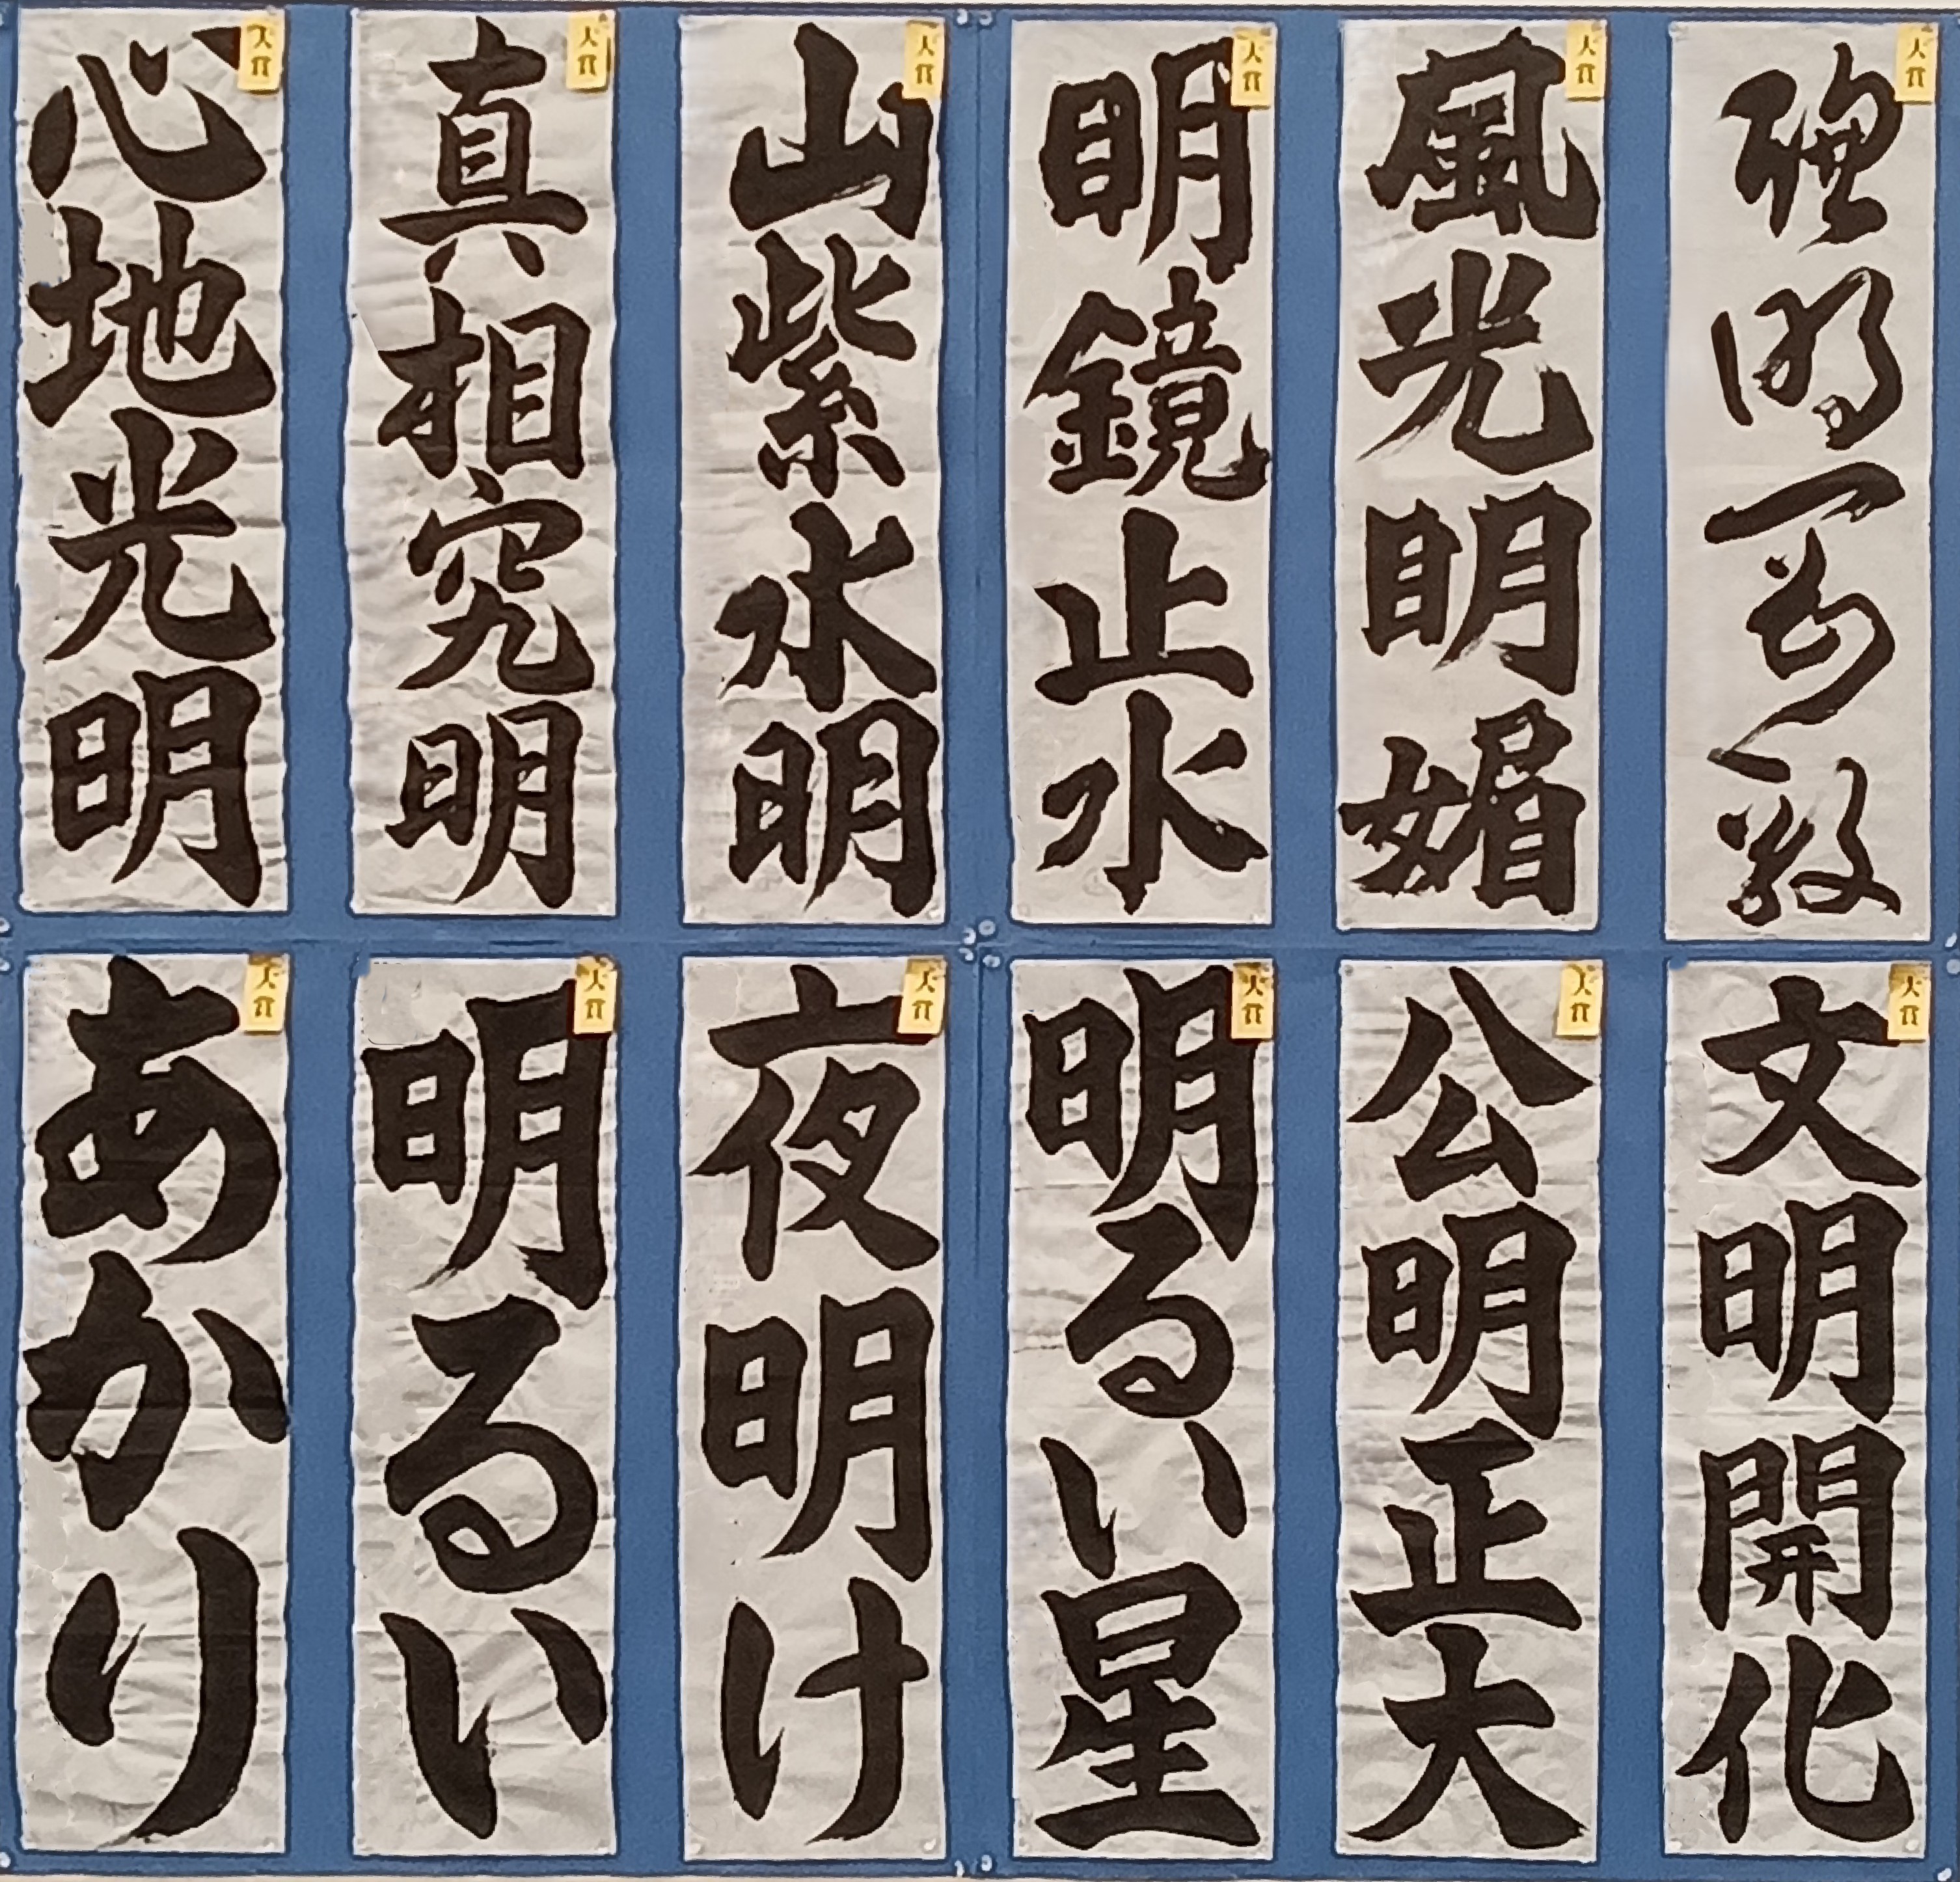 大賞
明
大賞
風光明媚
大賞
明鏡止水
大賞
山紫水明
大賞
真相究明
大賞
心地光明
大賞
文明開化
大賞
公明正大
大賞
明るい星
大賞
夜明け
大賞
明るい
大賞
あかり